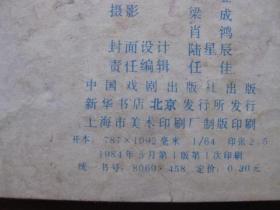 摄影 梁成
肖鸿
封面设计 陆星辰
责任编辑 任佳
中国戏剧出版社出版
新华书店北京发行所发行
上海市美术印刷厂制版印刷
开本:787×1092毫米 1/64 印张2.5
1984年5月第1版第1次印刷
统一书号:8069·458 定价:0.30元